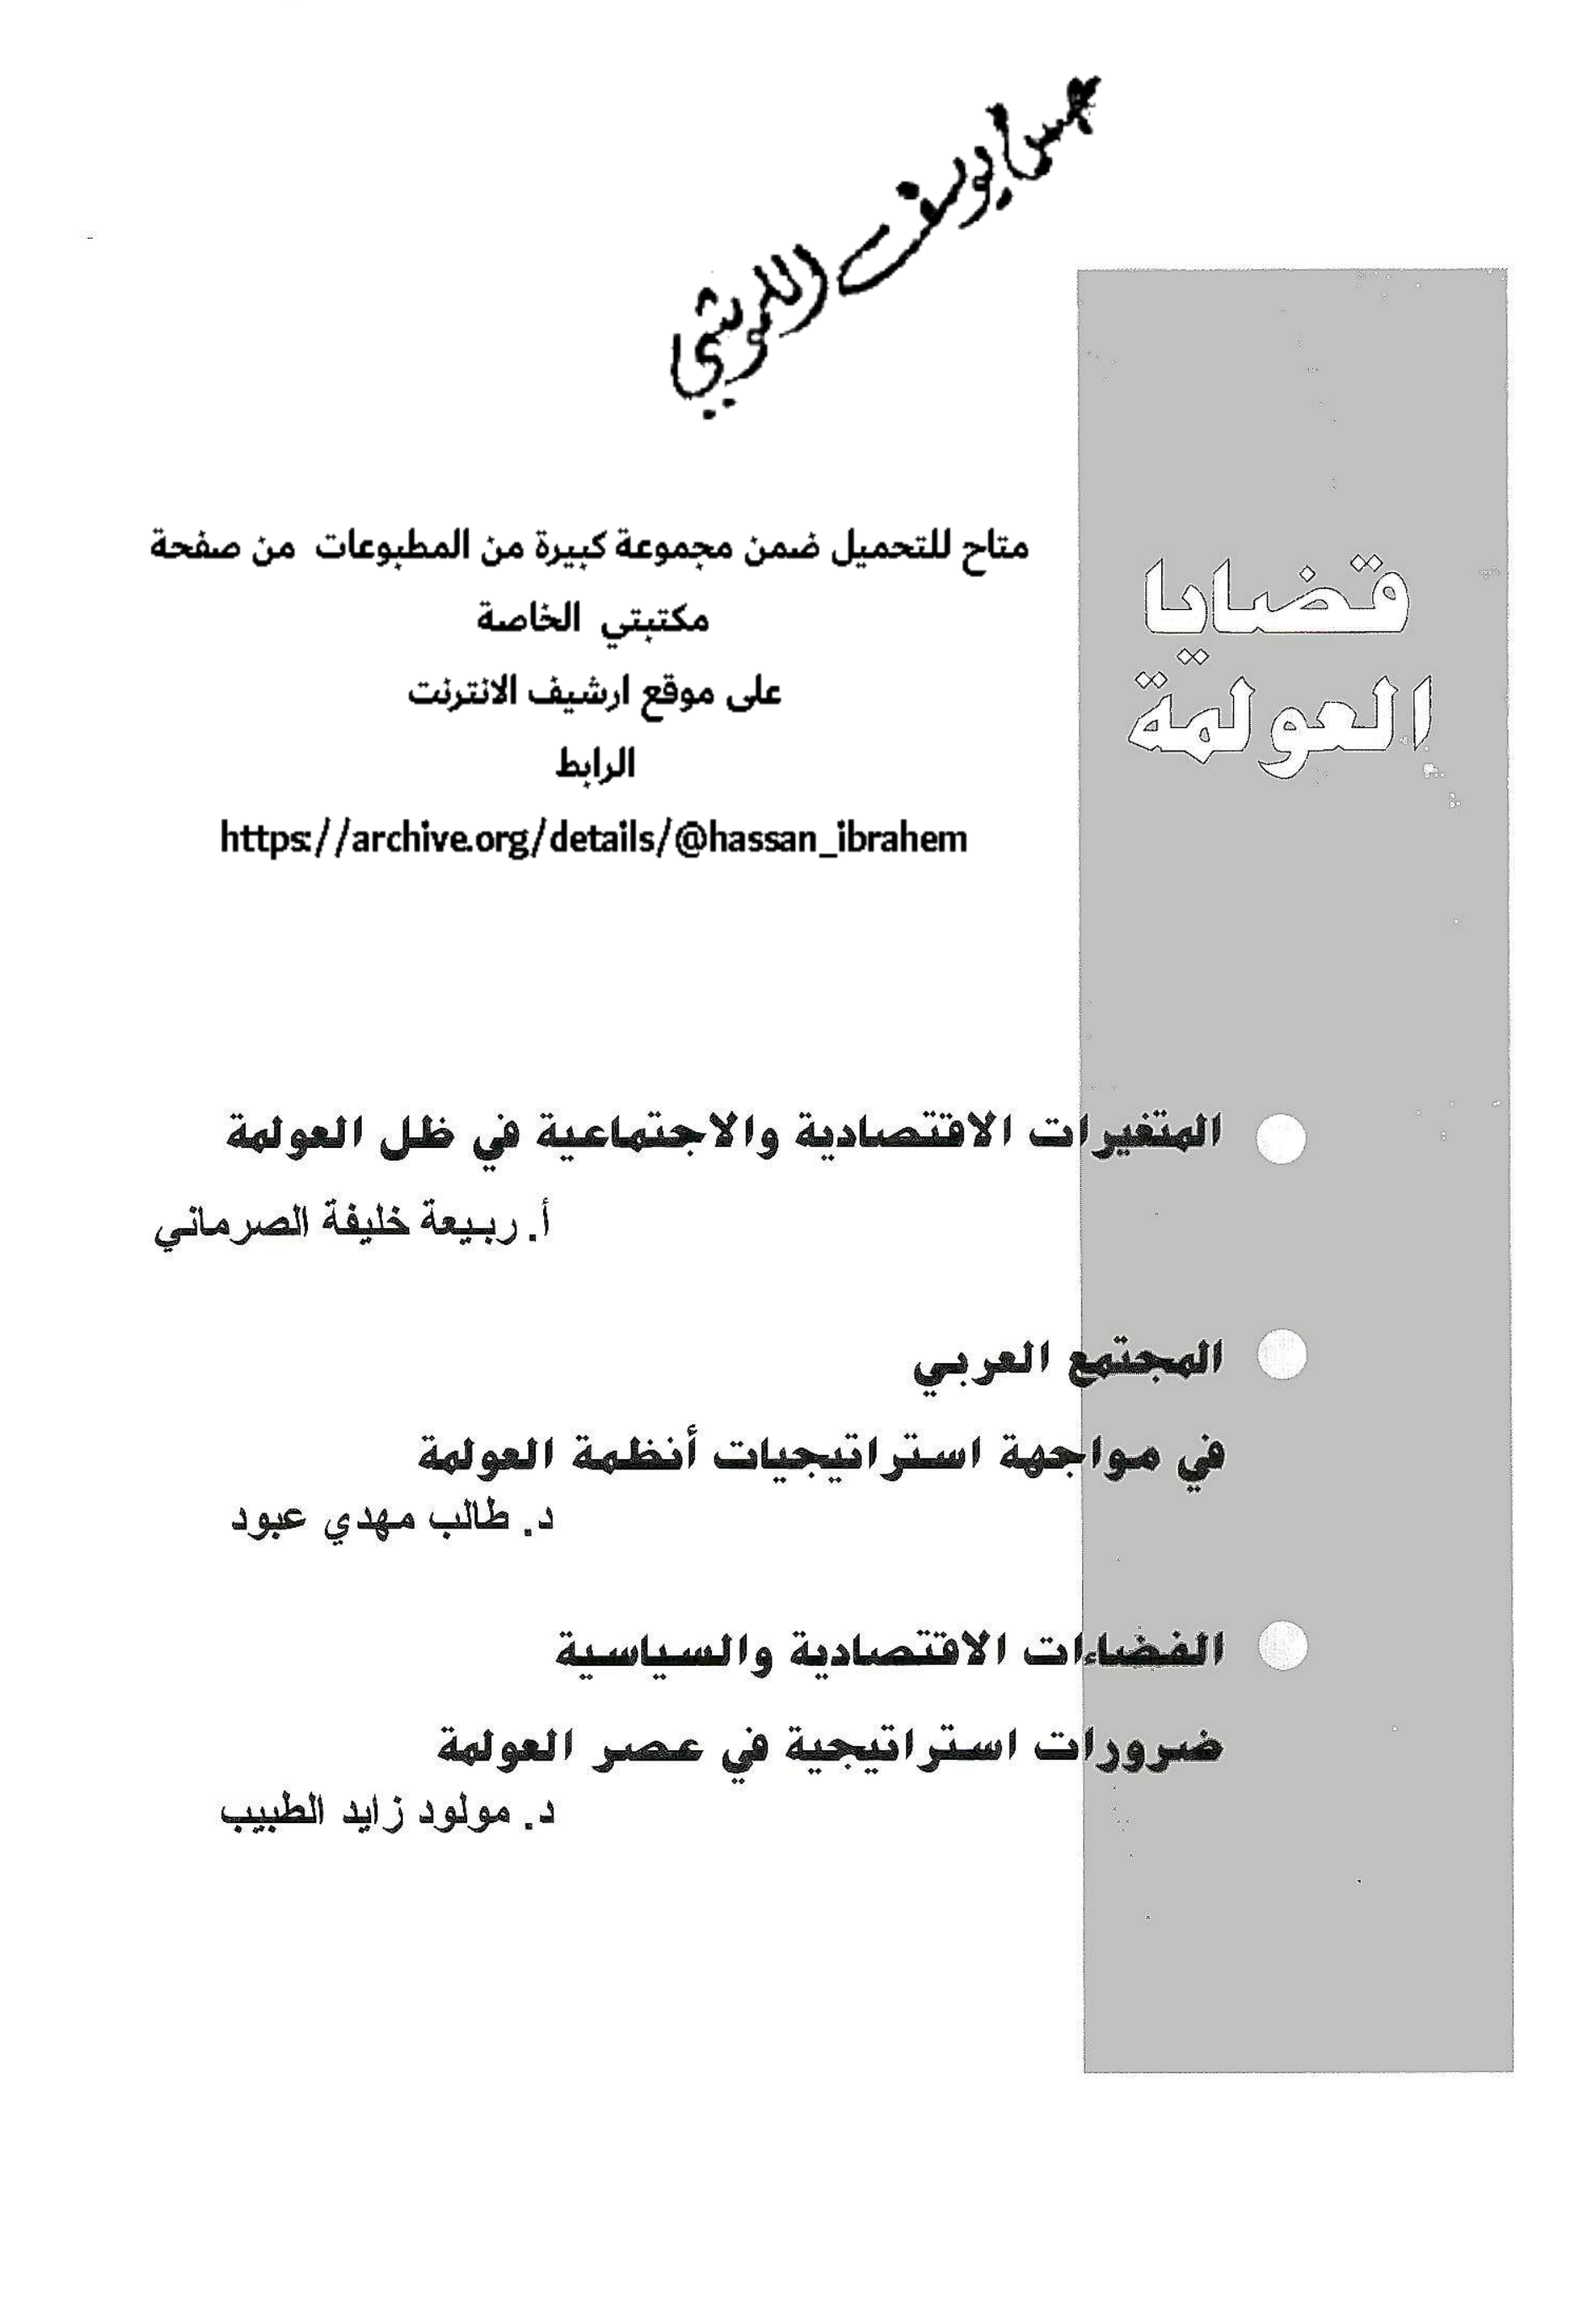 متاح للتحميل ضمن مجموعة كبيرة من المطبوعات من صفحة
مكتبتي الخاصة
على موقع ارشيف الانترنت
الرابط
https://archive.org/details/@hassan_ibrahem
قضايا
العولمة
المتغيرات الاقتصادية والاجتماعية في ظل العولمة
أ. ربيعة خليفة الصرماني
المجتمع العربي
في مواجهة استراتيجيات أنظمة العولمة
د. طالب مهدي عبود
الفضاءات الاقتصادية والسياسية
ضرورات استراتيجية في عصر العولمة
د. مولود زايد الطبيب